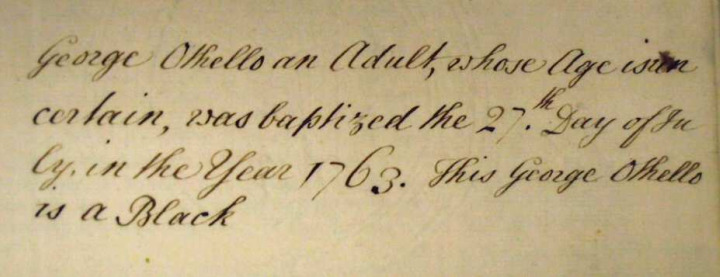 George Othello an Adult, whose Age is un
certain, was baptized the 27.th Day of Ju
ly. in the Year 1763. This George Othello
is a Black